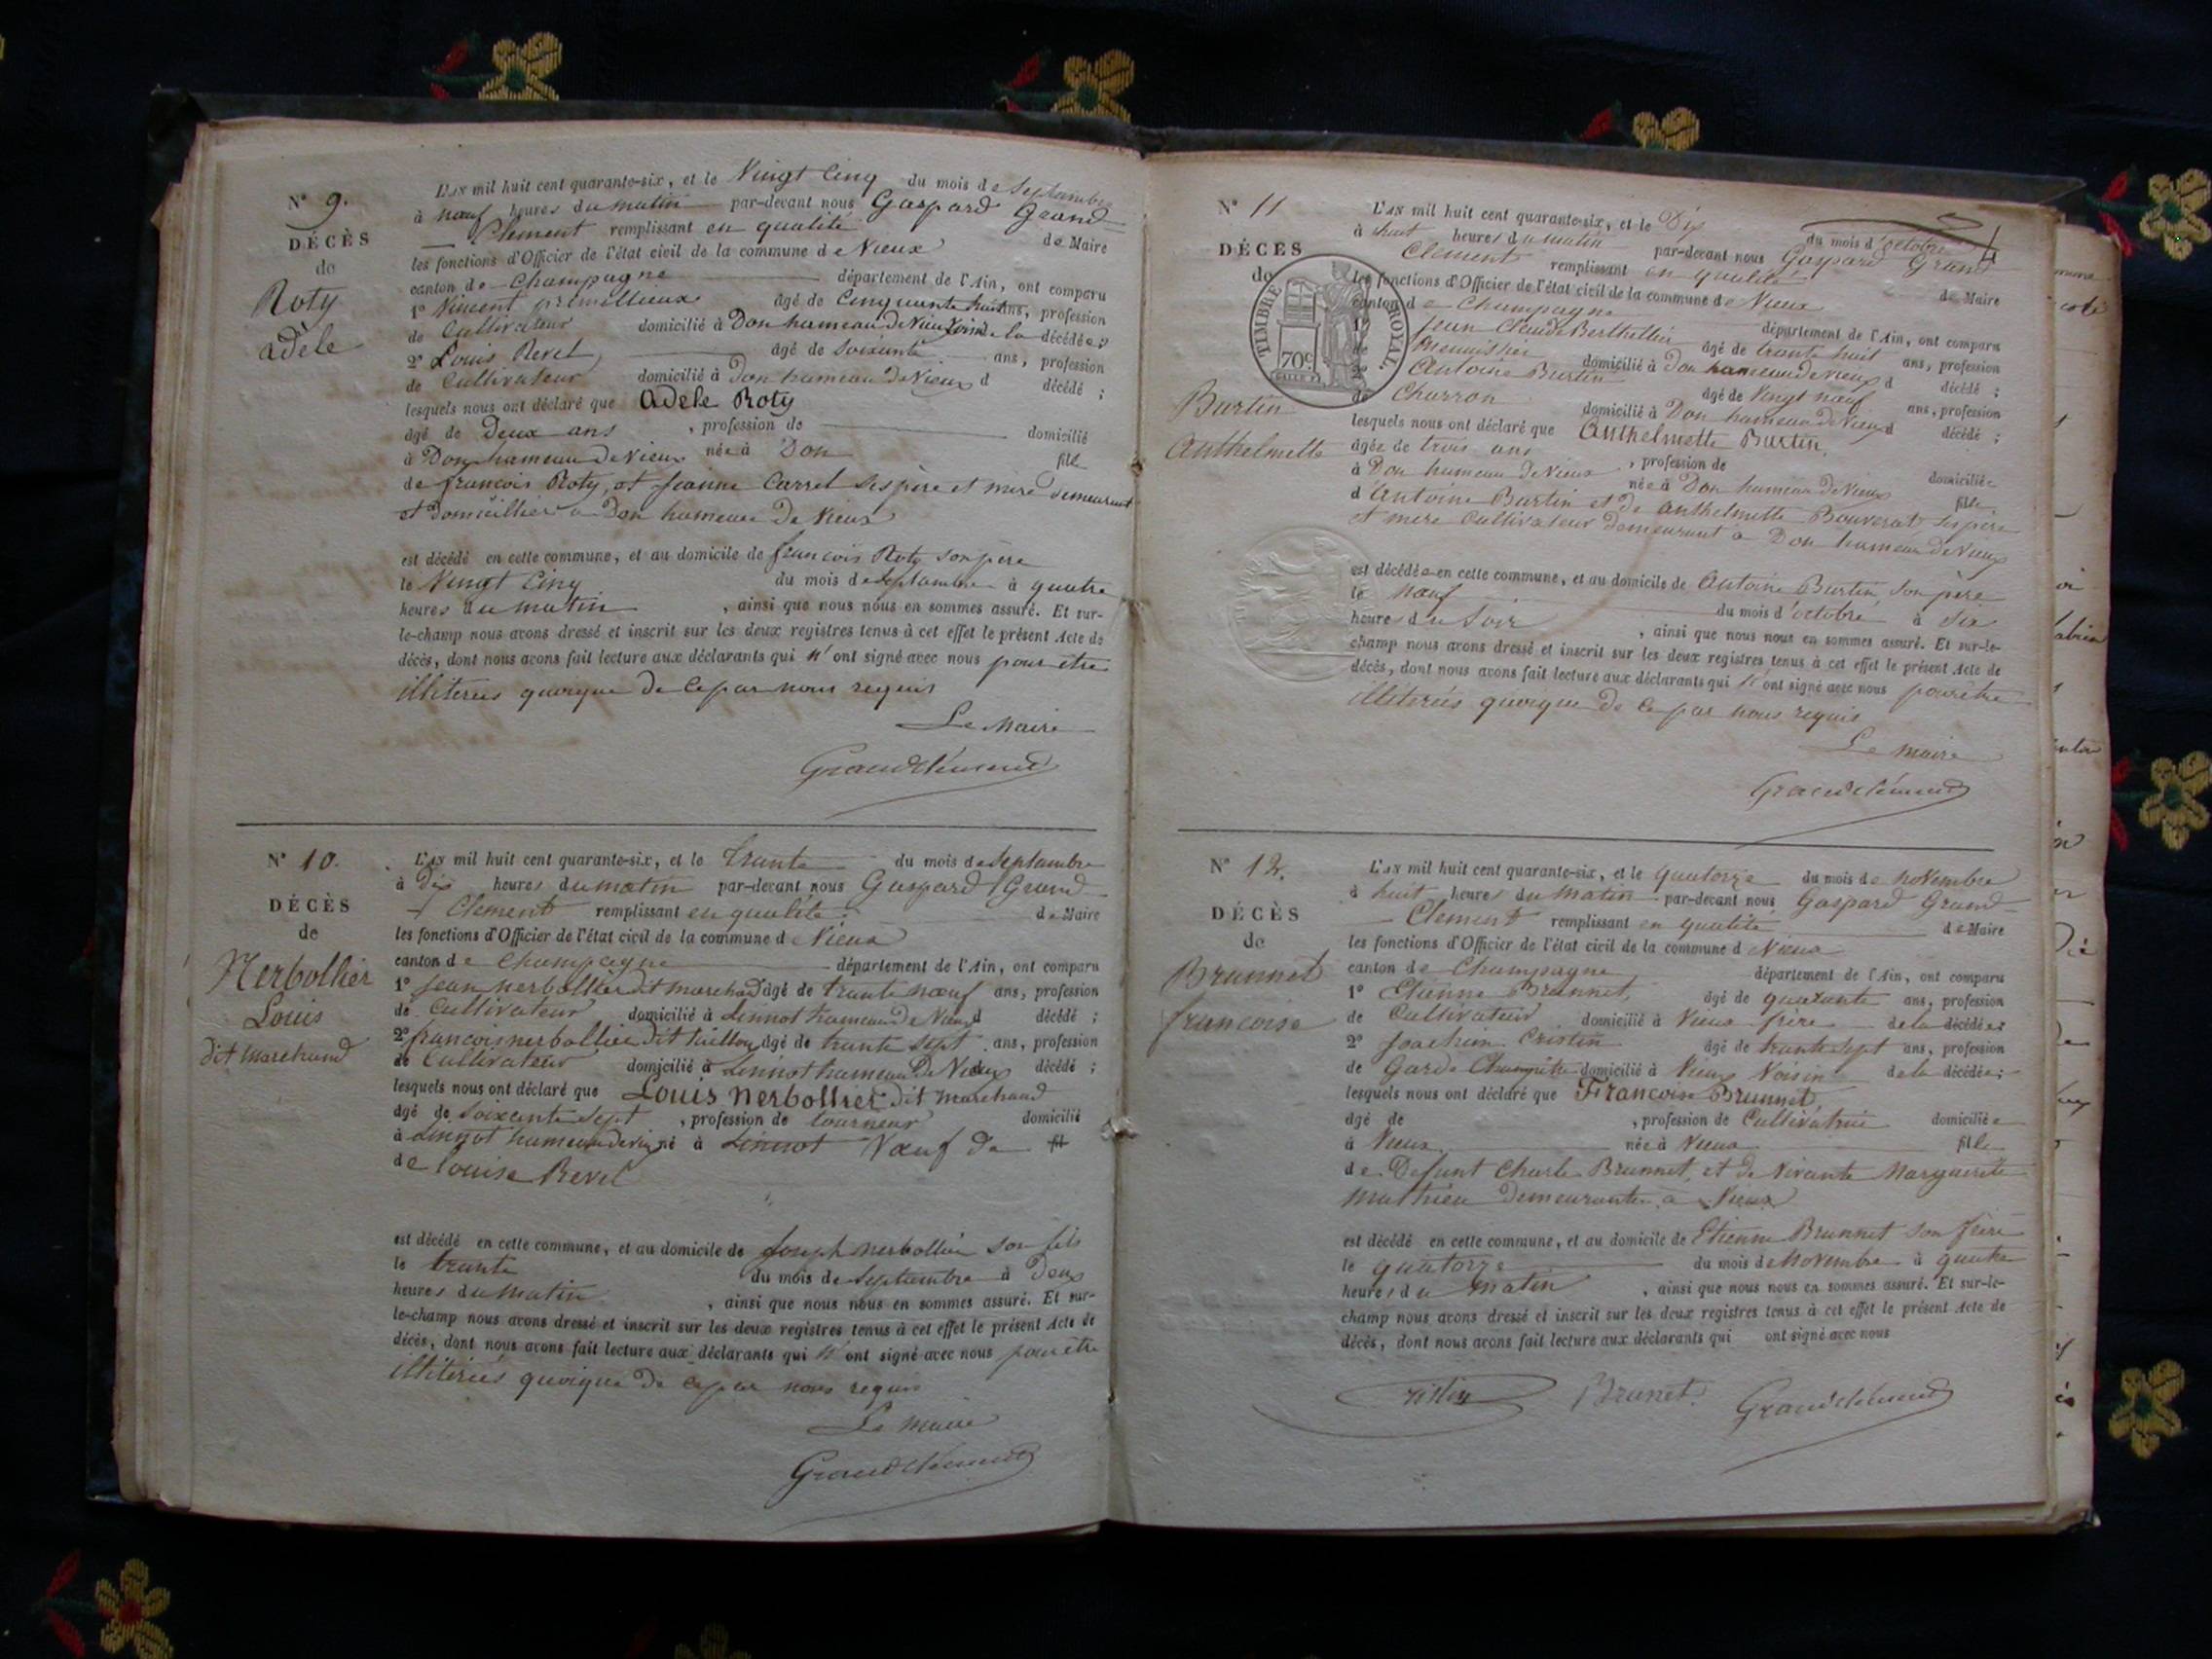 N° 9.
DÉCÈS
de
Roty
adele
L'AN mil huit cent quarante-six, et le Vingt Cinq du mois de Septambre
à nœuf heures du matin par-devant nous Gaspard Grand
Clement remplissant en qualité de Maire
les fonctions d'Officier de l'état civil de la commune de Vieux
canton de Champagne département de l'Ain, ont comparu
1° Vincent âgé de Cinquante huit ans, profession
de Cultivateur domicilié à Don hameau de Vieux Voisin de la décédée;
2° Louis Revel âgé de Soixante ans, profession
de Cultivateur domicilié à Don hameau de Vieux d décédé ;
lesquels nous ont déclaré que Adele Roty
âgé de Deux ans , profession de domicilié
à Don hameau de Vieux née à Don fille
de francois Roty, et Jeanne Carrel Ses père et mere demeurant
et domicilliés a Don hameau De Vieux
est décédé en cette commune, et au domicile de francois Roty son père
le Vingt Cinq du mois de Septambre à quatre
heures du matin , ainsi que nous nous en sommes assuré. Et sur-
le-champ nous avons dressé et inscrit sur les deux registres tenus à cet effet le présent Acte de
décès, dont nous avons fait lecture aux déclarants qui n'ont signé avec nous pour être
illiterés quoique De Ce par nous requis
Le Maire
Grandclément
N° 10.
DÉCÈS
de
Nerbollier
Louis
dit marchand
L'AN mil huit cent quarante-six, et le trante du mois de Septambre
à Dix heures du matin par-devant nous Gaspard Grand
Clement remplissant en qualité de Maire
les fonctions d'Officier de l'état civil de la commune de Vieux
canton de Champagne département de l'Ain, ont comparu
1° Jean nerbollier dit marchad âgé de trante nœuf ans, profession
de Cultivateur domicilié à Linnot hameau De Vieux d décédé ;
2° francois nerbollier dit âgé de trante sept ans, profession
de Cultivateur domicilié à Linnot hameau De Vieux décédé ;
lesquels nous ont déclaré que Louis Nerbollier dit marchand
âgé de Soixante Sept , profession de tourneur domicilié
à Linnot hameau de né à Linnot Vœuf De fil
de Louise Revel
est décédé en cette commune, et au domicile de Joseph nerbollier son fils
le trante du mois de Septambre à Deux
heures du matin , ainsi que nous nous en sommes assuré. Et sur-
le-champ nous avons dressé et inscrit sur les deux registres tenus à cet effet le présent Acte de
décès, dont nous avons fait lecture aux déclarants qui n'ont signé avec nous pour être
illiterés quoique De Ce par nous requis
Le Maire
Grandclément
N° 11
DÉCÈS
de
TIMBRE ROYAL.
70c
Burtin
Anthelmette
L'AN mil huit cent quarante-six, et le Dix du mois d'octobre
à huit heures du matin par-devant nous Gaspard Grand
Clement remplissant en qualité de Maire
les fonctions d'Officier de l'état civil de la commune de Vieux
canton de Champagne département de l'Ain, ont comparu
1° Jean Claude Berthellier âgé de trante huit ans, profession
de Menuisier domicilié à Don hameau de Vieux d décédé ;
2° Antoine Burtin âgé de Vingt nœuf ans, profession
de Charron domicilié à Don hameau de Vieux d décédé ;
lesquels nous ont déclaré que Anthelmette Burtin,
âgée de trois ans , profession de domiciliée
à Don hameau de Vieux née à Don hameau de Vieux fille
d'Antoine Burtin et de Anthelmette Bouverat ses père
et mere Cultivateur Demeurant a Don hameau de Vieux
est décédée en cette commune, et au domicile de Antoine Burtin son père
le nœuf du mois d'octobre à Six
heure du Soir , ainsi que nous nous en sommes assuré. Et sur-le-
champ nous avons dressé et inscrit sur les deux registres tenus à cet effet le présent Acte de
décès, dont nous avons fait lecture aux déclarants qui n'ont signé avec nous pour être
illiterés quoique De Ce par nous requis
Le maire
Grandclément
N° 12.
DÉCÈS
de
Brunnet
francoise
L'AN mil huit cent quarante-six, et le quatorze du mois de noVembre
à huit heures du matin par-devant nous Gaspard Grand
Clement remplissant en qualité de Maire
les fonctions d'Officier de l'état civil de la commune de Vieux
canton de Champagne département de l'Ain, ont comparu
1° Etienne Brunnet, âgé de quarante ans, profession
de Cultivateur domicilié à Vieux frère de la décédée
2° Joachim Cristin âgé de trante Sept ans, profession
de Garde Champêtre domicilié à Vieux Voisin de la décédée;
lesquels nous ont déclaré que Francoise Brunnet
âgé de , profession de Cultivatrice domiciliée
à Vieux née à Vieux fille
de Defunt Charle Brunnet, et de Vivante Marguerite
Mathieu Demeurante a Vieux
est décédé en cette commune, et au domicile de Etienne Brunnet Son frère
le quatorze du mois de NoVembre à quatre
heures du Matin , ainsi que nous nous en sommes assuré. Et sur-le-
champ nous avons dressé et inscrit sur les deux registres tenus à cet effet le présent Acte de
décès, dont nous avons fait lecture aux déclarants qui ont signé avec nous
Cristin Brunet. Grandclément